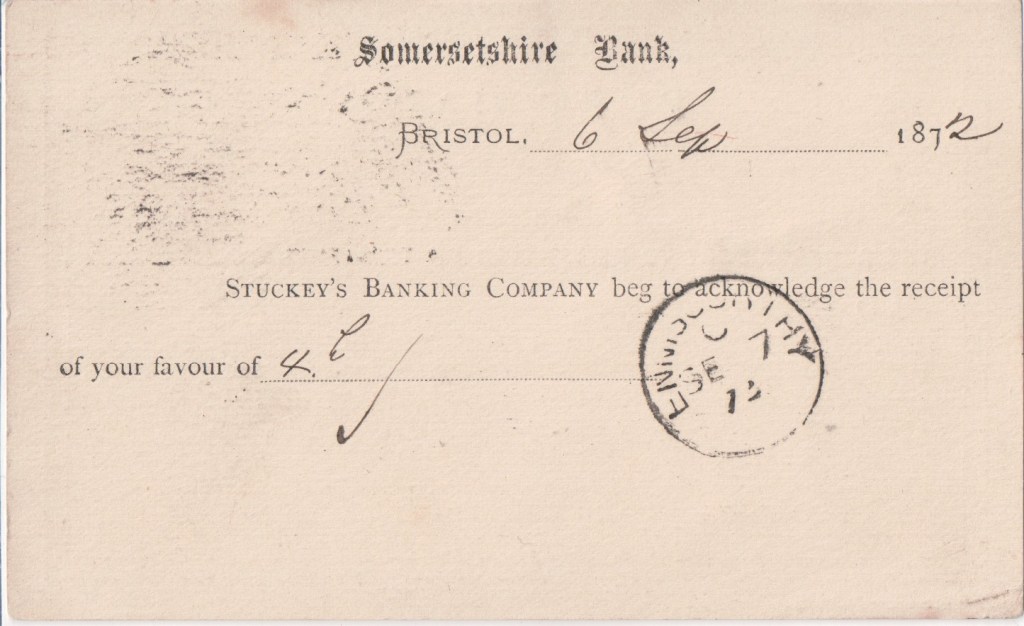 Somersetshire Bank,
BRISTOL. 6 Sep 1872
STUCKEY'S BANKING COMPANY beg to acknowledge the receipt
of your favour of 4.
ENNISCORTHY
C
7
SE
72